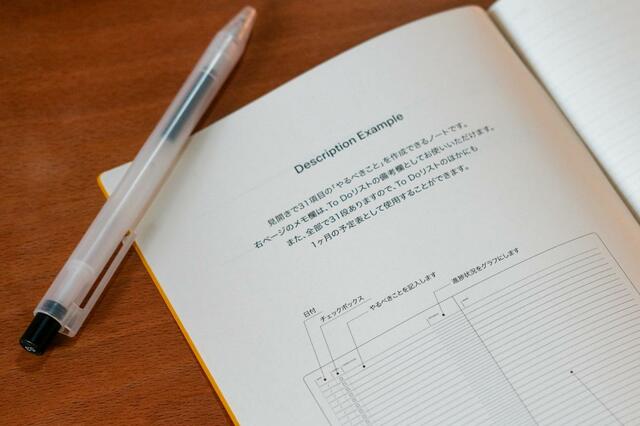 Description Example
見開きで31項目の「やるべきこと」を作成できるノートです。
右ページのメモ欄は、To Doリストの備考欄としてお使いいただけます。
また、全部で31段ありますので、To Doリストのほかにも
1ヶ月の予定表として使用することができます。
日付
チェックボックス
やるべきことを記入します
進捗状況をグラフにします